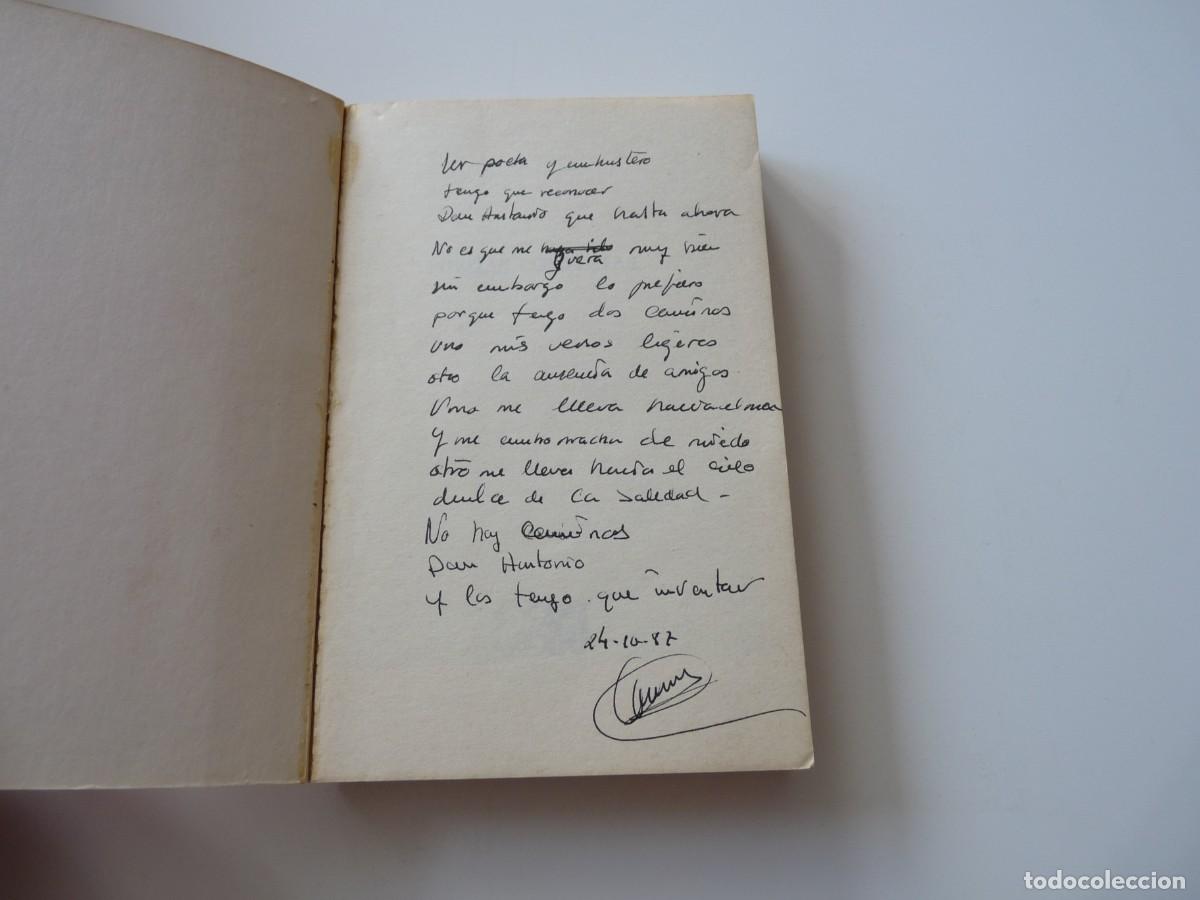 Ser poeta y embustero
tengo que reconocer
Don Antonio que hasta ahora
No es que me fuera muy bien
sin embargo lo prefiero
porque tengo dos caminos
uno mis versos ligeros
otro la ausencia de amigos
Uno me lleva hacia el mar
Y me emborracha de miedo
otro me lleva hacia el cielo
dulce de la soledad -
No hay caminos
Don Antonio
y los tengo que inventar
24-10-87
todocoleccion